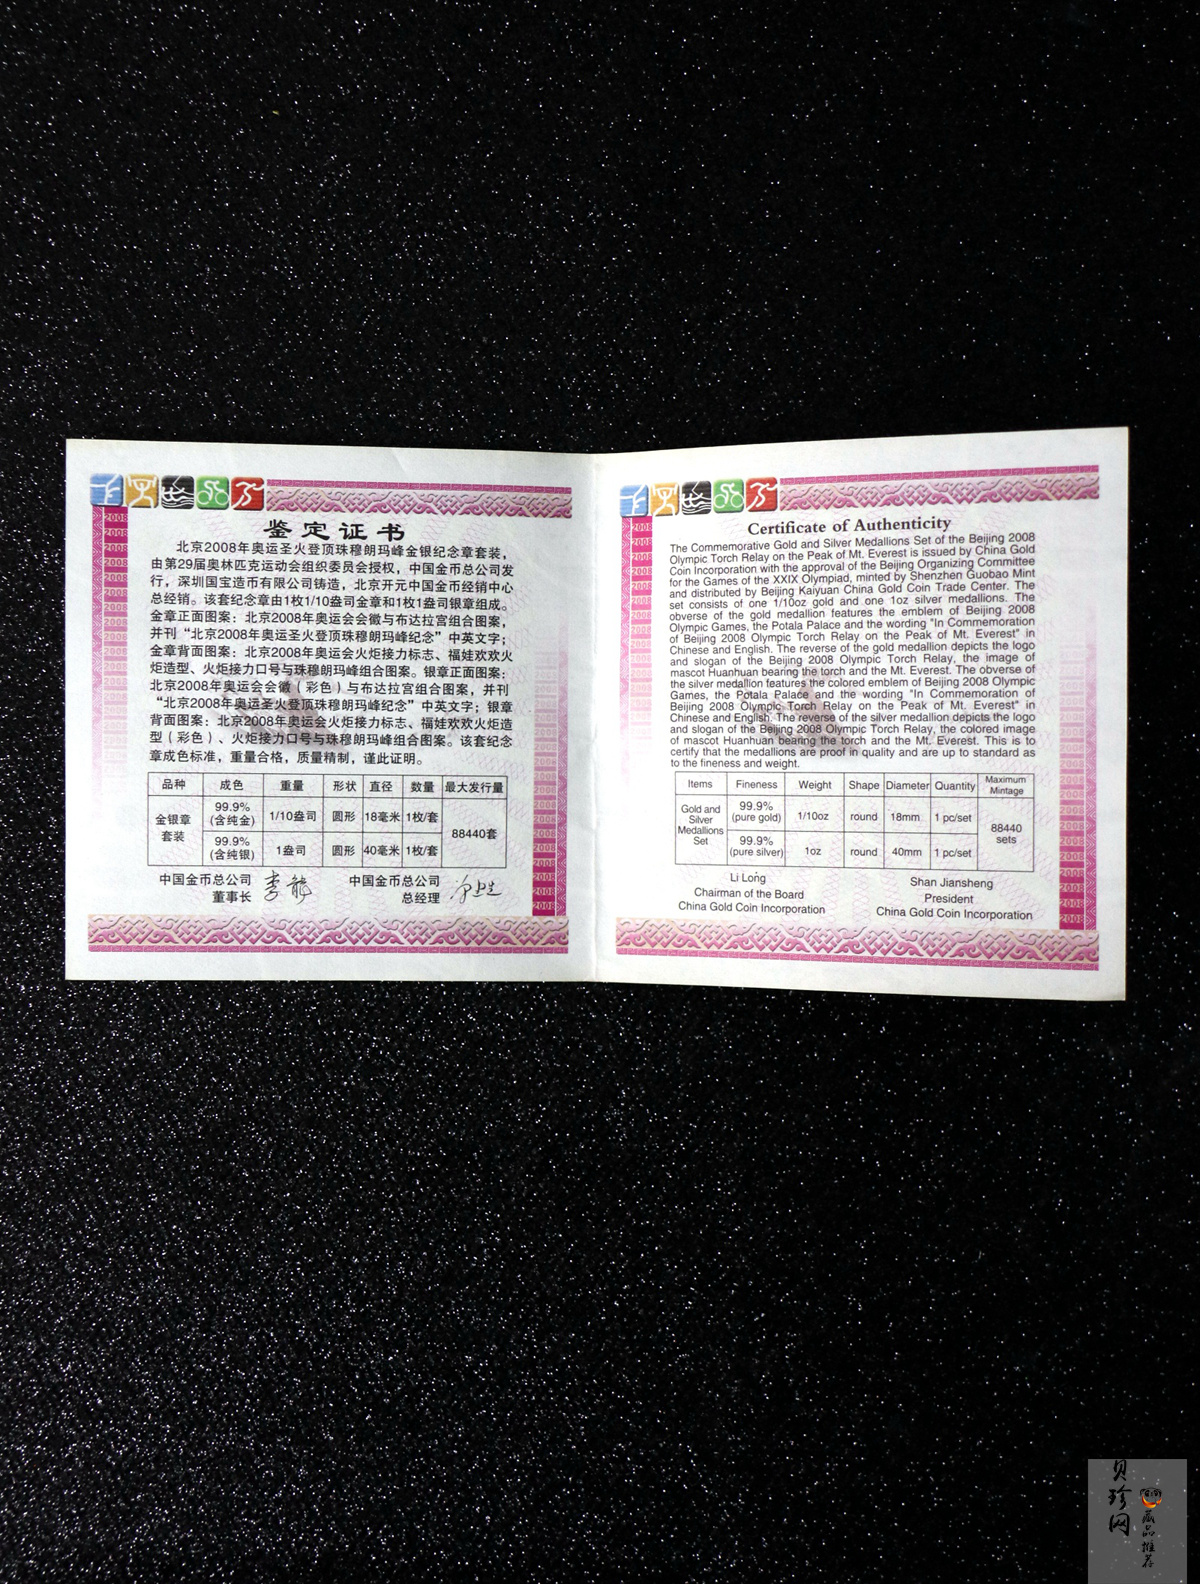 鉴定证书
北京2008年奥运圣火登顶珠穆朗玛峰金银纪念章套装，
由第29届奥林匹克运动会组织委员会授权，中国金币总公司发
行，深圳国宝造币有限公司铸造，北京开元中国金币经销中心
总经销。该套纪念章由1枚1/10盎司金章和1枚1盎司银章组成。
金章正面图案：北京2008年奥运会会徽与布达拉宫组合图案，
并刊“北京2008年奥运圣火登顶珠穆朗玛峰纪念”中英文字；
金章背面图案：北京2008年奥运会火炬接力标志、福娃欢欢火
炬造型、火炬接力口号与珠穆朗玛峰组合图案。银章正面图案：
北京2008年奥运会会徽（彩色）与布达拉宫组合图案，并刊
“北京2008年奥运圣火登顶珠穆朗玛峰纪念”中英文字；银章
背面图案：北京2008年奥运会火炬接力标志、福娃欢欢火炬造
型（彩色）、火炬接力口号与珠穆朗玛峰组合图案。该套纪念
章成色标准，重量合格，质量精制，谨此证明。
品种 成色 重量 形状 直径 数量 最大发行量
金银章套装 99.9%(含纯金) 1/10盎司 圆形 18毫米 1枚/套 88440套
99.9%(含纯银) 1盎司 圆形 40毫米 1枚/套
中国金币总公司 中国金币总公司
董事长 李龙 总经理
Certificate of Authenticity
The Commemorative Gold and Silver Medallions Set of the Beijing 2008
Olympic Torch Relay on the Peak of Mt. Everest is issued by China Gold
Coin Incorporation with the approval of the Beijing Organizing Committee
for the Games of the XXIX Olympiad, minted by Shenzhen Guobao Mint
and distributed by Beijing Kaiyuan China Gold Coin Trade Center. The
set consists of one 1/10oz gold and one 1oz silver medallions. The
obverse of the gold medallion features the emblem of Beijing 2008
Olympic Games, the Potala Palace and the wording "In Commemoration
of Beijing 2008 Olympic Torch Relay on the Peak of Mt. Everest" in
Chinese and English. The reverse of the gold medallion depicts the logo
and slogan of the Beijing 2008 Olympic Torch Relay, the image of
mascot Huanhuan bearing the torch and the Mt. Everest. The obverse of
the silver medallion features the colored emblem of Beijing 2008 Olympic
Games, the Potala Palace and the wording "In Commemoration of
Beijing 2008 Olympic Torch Relay on the Peak of Mt. Everest" in
Chinese and English. The reverse of the silver medallion depicts the logo
and slogan of the Beijing 2008 Olympic Torch Relay, the colored image
of mascot Huanhuan bearing the torch and the Mt. Everest. This is to
certify that the medallions are proof in quality and are up to standard as
to the fineness and weight.
Items Fineness Weight Shape Diameter Quantity Maximum Mintage
Gold and Silver Medallions Set 99.9% (pure gold) 1/10oz round 18mm 1 pc/set 88440 sets
99.9% (pure silver) 1oz round 40mm 1 pc/set
Li Long Shan Jiansheng
Chairman of the Board President
China Gold Coin Incorporation China Gold Coin Incorporation
贝珍网
藏品推荐